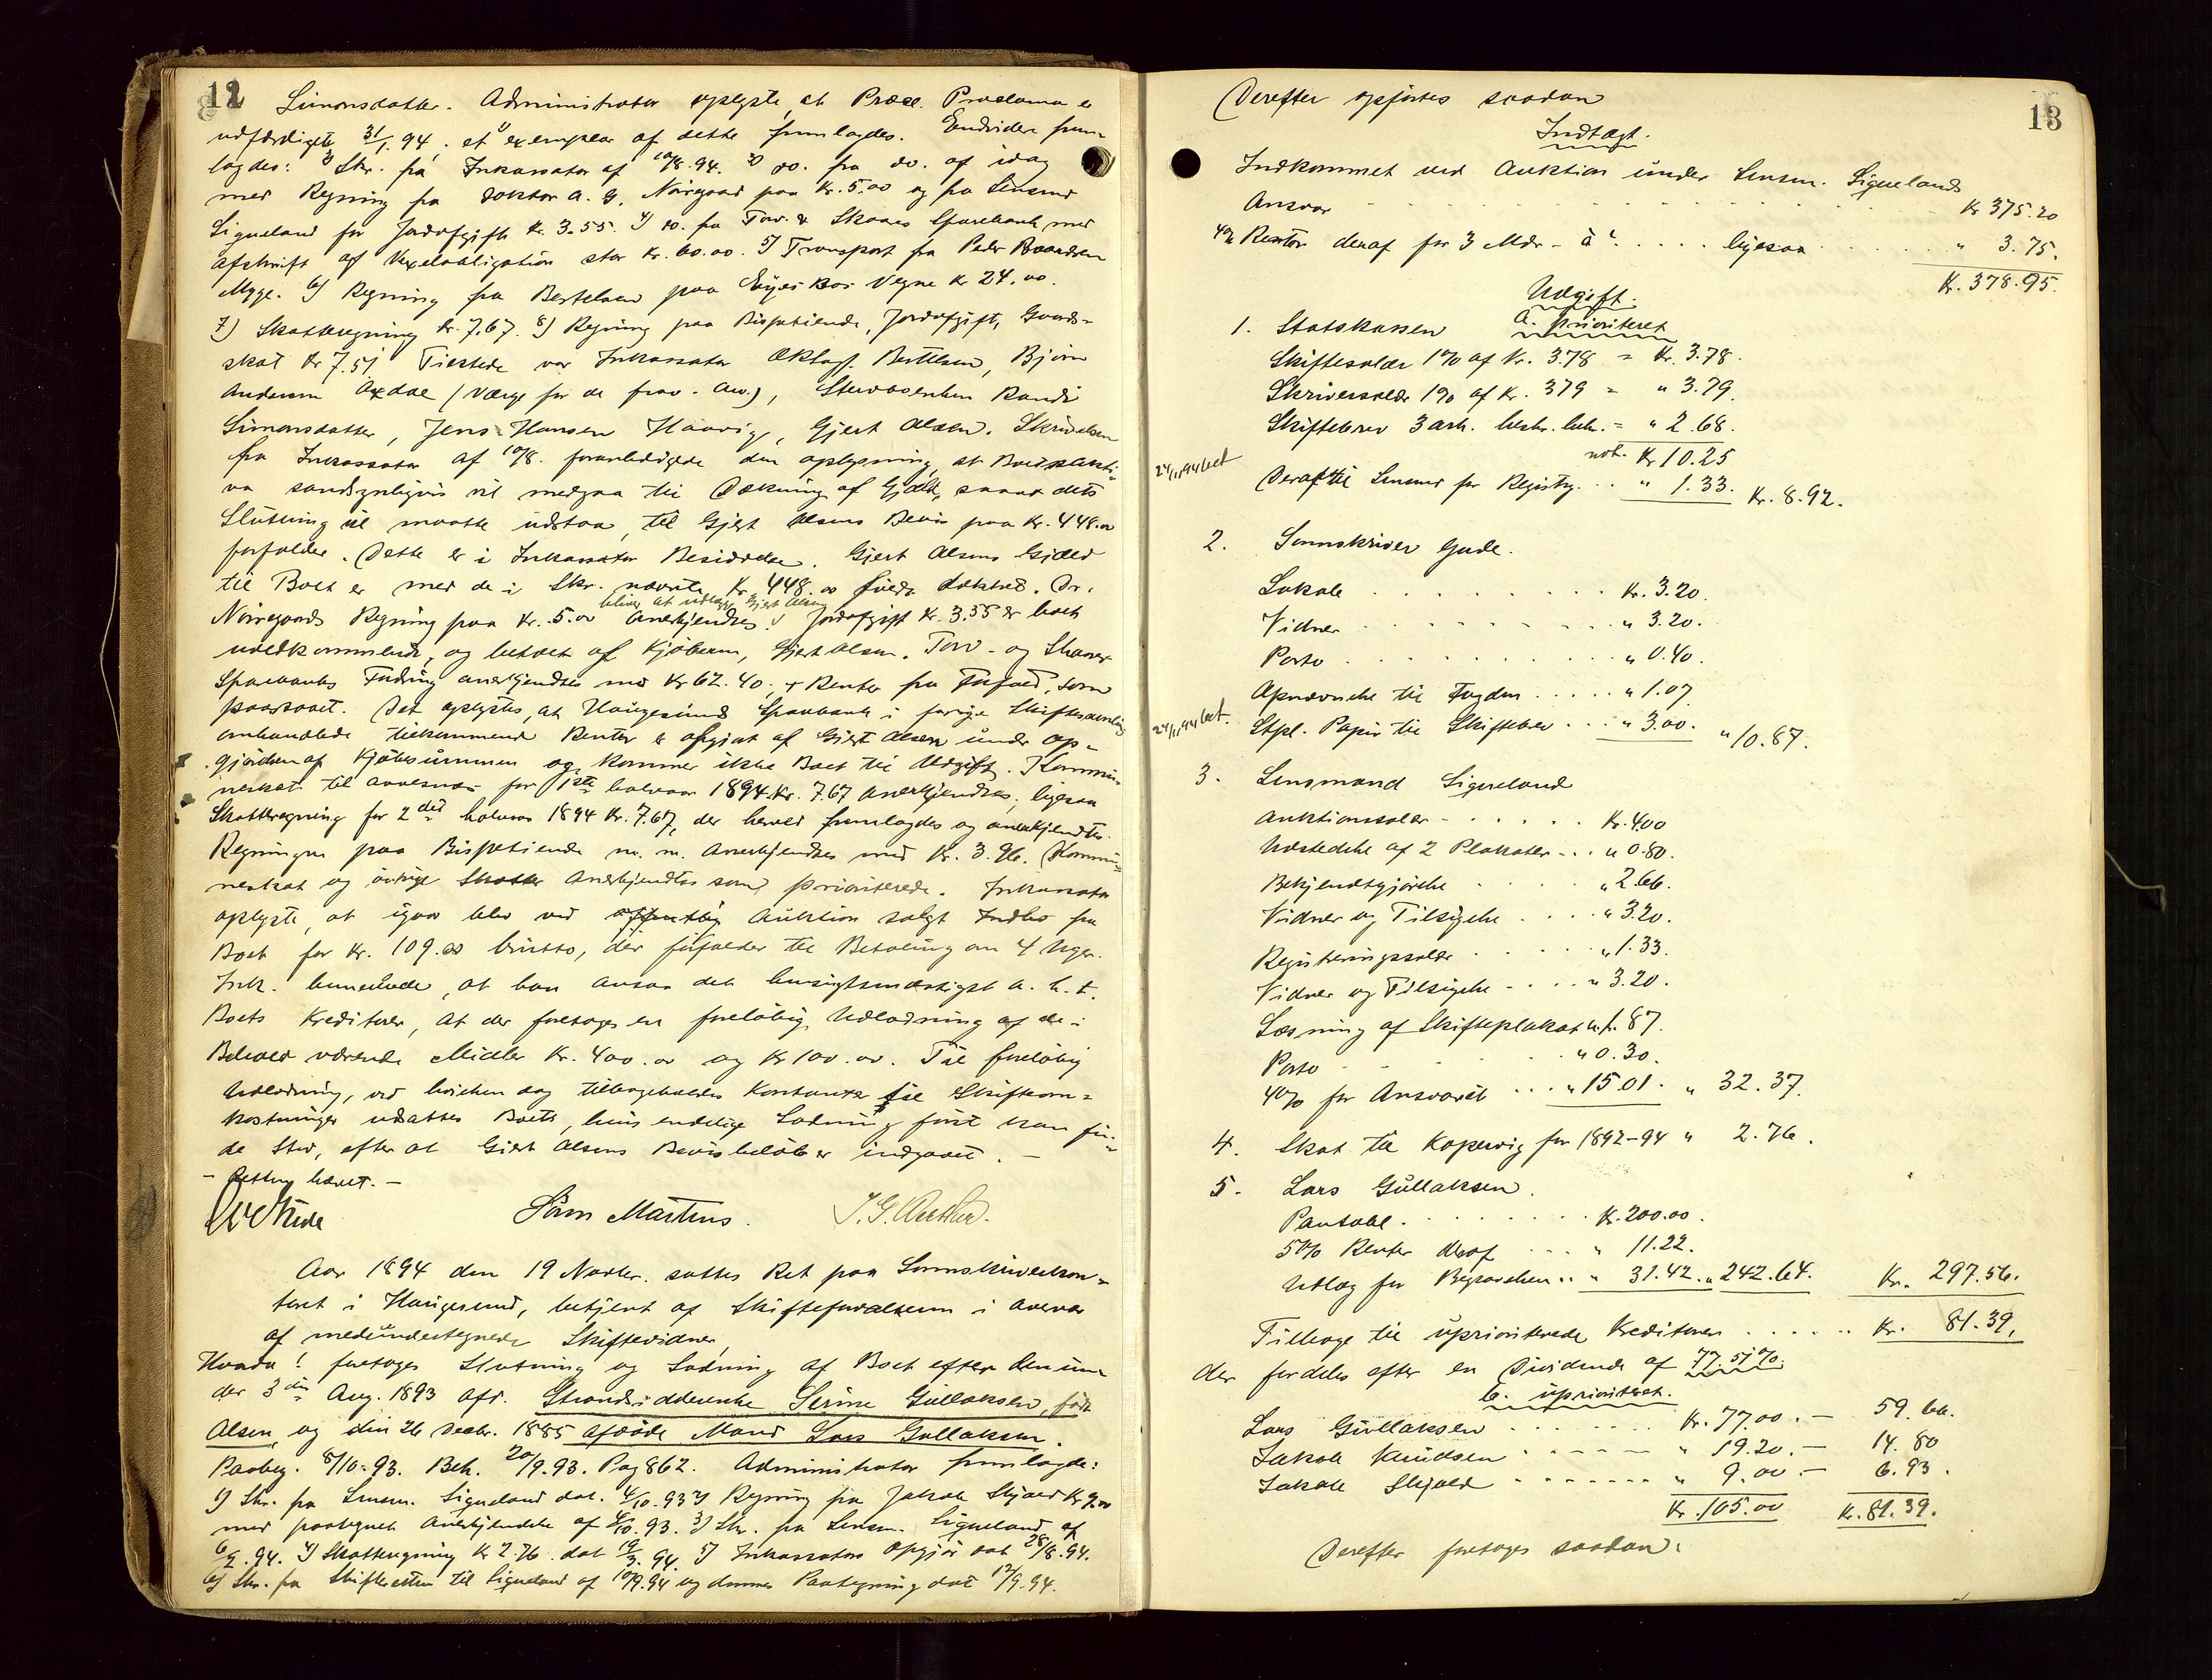 12
Simonsdatter. Administrator oplyste, at Præcl. Proclama er
udfærdiget 31/1.94, et exemplar af dette fremlagdes. Endvidere frem-
lagdes: 2) Skr. fra Inkassator af 10/8.94. 3) do. fra do. af idag
med Regning fra Doktor A. G. Nørregaard paa Kr. 5.00 og fra Lensmd
Signeland for Jordafgift Kr. 3.55. 4) do. fra Torv. & Skaares Sparebank med
afskrift af Vexelobligation stor Kr. 60.00. 5) Transport fra Peder Baardsen
Myge. 6) Regning fra Bertelsen paa Vegne Kr 24.00.
7) Skatteregning Kr. 7.67. 8) Regning paa Bispetiende, Jordafgift, Grund-
skat Kr 7.51 Tilstede var Inkassator Bertelsen, Bjørn
Andersen (Værge for de frav. Arv.), Stervboenken Randi
Simonsdatter, Jens Hansen Haavig, Gjert Olsen. Skrivelsen
fra Inkassator af 10/8. foranledigede den oplysning, at Boets akti-
va sandsynligvis vil medgaa til Dækning af Gjæld, saaat dets
Slutning vil maatte udstaa, til Gjert Olsens Bevis paa Kr. 448.00
forfalder. Dette er i Inkassators Besiddelse. Gjert Olsens Gjæld
til Boet er med de i Skr. nævnte Kr 448.00 fuldt dækket. Dr.
bliver at udlægge Gjert Olsen
Nørregaards Regning paa Kr. 5.00 anerkjendtes. Jordafgift Kr. 3.55 er boet
uvedkommende, og betalt af Kjøberen, Gjert Olsen. Torv- og Skaares
Sparebanks Fordring anerkjendtes med Kr 62.40, + Renter fra Forfald, som
paastaaet. Det oplystes, at Haugesunds Sparebank i forrige Skiftesamling
omhandlede tilkommende Renter er afgjort af Gjert Olsen under op-
gjørelsen af Kjøbesummen og kommer ikke Boet til Udgift. Kommu-
neskat til Avaldsnes for 1ste halvaar 1894 Kr. 7.67 anerkjendtes, ligesaa
Skatteregning for 2det halvaar 1894 Kr. 7.67, der herved fremlagdes og anerkjendtes.
Regningen paa Bispetiende m. m. anerkjendtes med Kr. 3.96. Kommu-
neskat og øvrige Skatter anerkjendtes som prioriterede. Inkassator
oplyste, at igaar blev ved offentlig Auktion solgt Indbo fra
Boet for Kr. 109.00 brutto, der forfalder til Betaling om 4 Uger.
Ink. bemærkede, at han ansaa det hensigtsmæssigst a. h. t.
Boets Kreditorer, at der foretages en foreløbig Udlodning af de i
Behold værende Midler Kr. 400.00 og Kr 100.00. Til foreløbig
Udlodning, ved hvilken dog tilbageholdes Kontanter til Skifteom-
kostninger udsattes Boets, hvis endelige Lodning først kan fin-
de Sted, efter at Gjert Olsens Bevisbeløb er indgaaet. —
— Retten hævet. —
Søren Martens.
Aar 1894 den 19 Novbr. sattes Ret paa Sorenskriverkon-
toret i Haugesund, betjent af Skifteforvalteren i overvær
af medundertegnede Skiftevidner,
Hvorda! foretoges Slutning og Lodning af Boet efter den un-
der 3die Aug. 1893 afd. Strandsidderenke Serine Gullaksen, født
Olsen, og den 26 Decbr. 1885 afdøde Mand Lars Gullaksen.
Paabeg. 8/10.93. Bek. 20/9.93. Pag 862. Administrator fremlagde:
1) Skr. fra Lensm. Signeland dat. 4/10.93 2) Regning fra Jakob Skjold Kr 9.00
med paategnet Anerkjendelse af 4/10.93. 3) Skr. fra Lensm. Signeland af
6/2.94. 4) Skatteregning Kr 2.76 dat 19/3.94. 5) Inkassators Opgjør dat 28/8.94.
6) Skr. fra Skifteretten til Signeland af 10/9.94 og dennes Paategning dat 12/9.94.
13
Derefter opførtes saadan
Indtægt.
Indkommet ved Auktion under Lensm. Signelands
Ansvar Kr 375.20
4% Renter deraf for 3 Mdr - à . . . . ligesaa " 3.75.
Kr. 378.95.
Udgift.
a. prioriteret
1. Statskassen
Skiftesalær 1% af Kr. 378 = Kr. 3.78.
Skriversalær 1% af Kr. 379 = " 3.79.
Skiftebrev 3 ark. beskr. beh. = " 2.68.
not. Kr 10.25
24/11.94 bet
Deraf til Lensmd for Registrg. . . " 1.33. Kr. 8.92.
2. Sorenskriver Gude.
Lokale . . . . . Kr. 3.20.
Vidner . . . . . " 3.20.
Porto . . . . . " 0.40.
Opnævnelse til Fogden . . . . " 1.07
24/11.94 bet.
Stpl. Papir til Skiftebrev . . . " 3.00. " 10.87.
3. Lensmand Signeland
Auktionssalær - . . . . Kr. 4.00
Udstedelse af 2 Plakater - . . " 0.80.
Bekjendtgjørelse . . . " 2.66.
Vidner og Tilsigelse . . . . " 3.20.
Registreringssalær . . . " 1.33.
Vidner og Tilsigelse - . . . " 3.20.
Læsning af Skifteplakat " 1.87.
Porto - - . . " 0.30.
4% for Ansvaret . . . " 15.01. " 32.37.
4. Skat til Kopervig for 1892-94 " 2.76.
5. Lars Gullaksen.
Pantobl. . . . . . Kr. 200.00.
5% Renter deraf . . . " 11.22.
Udlæg for Begravelsen . . " 31.42. " 242.64. Kr. 297.56.
Tilbage til uprioriterede Kreditorer . . . . . Kr. 81.39,
der fordeles efter en Dividende af 77.51%.
b. uprioriteret.
Lars Gullaksen . . . . Kr. 77.00. — 59.66.
Jakob Knudsen . . . . " 19.20. — 14.80
Jakob Skjold . . . . " 9.00 — 6.93.
Kr. 105.00 Kr. 81.39.
Derefter foretoges saadan: